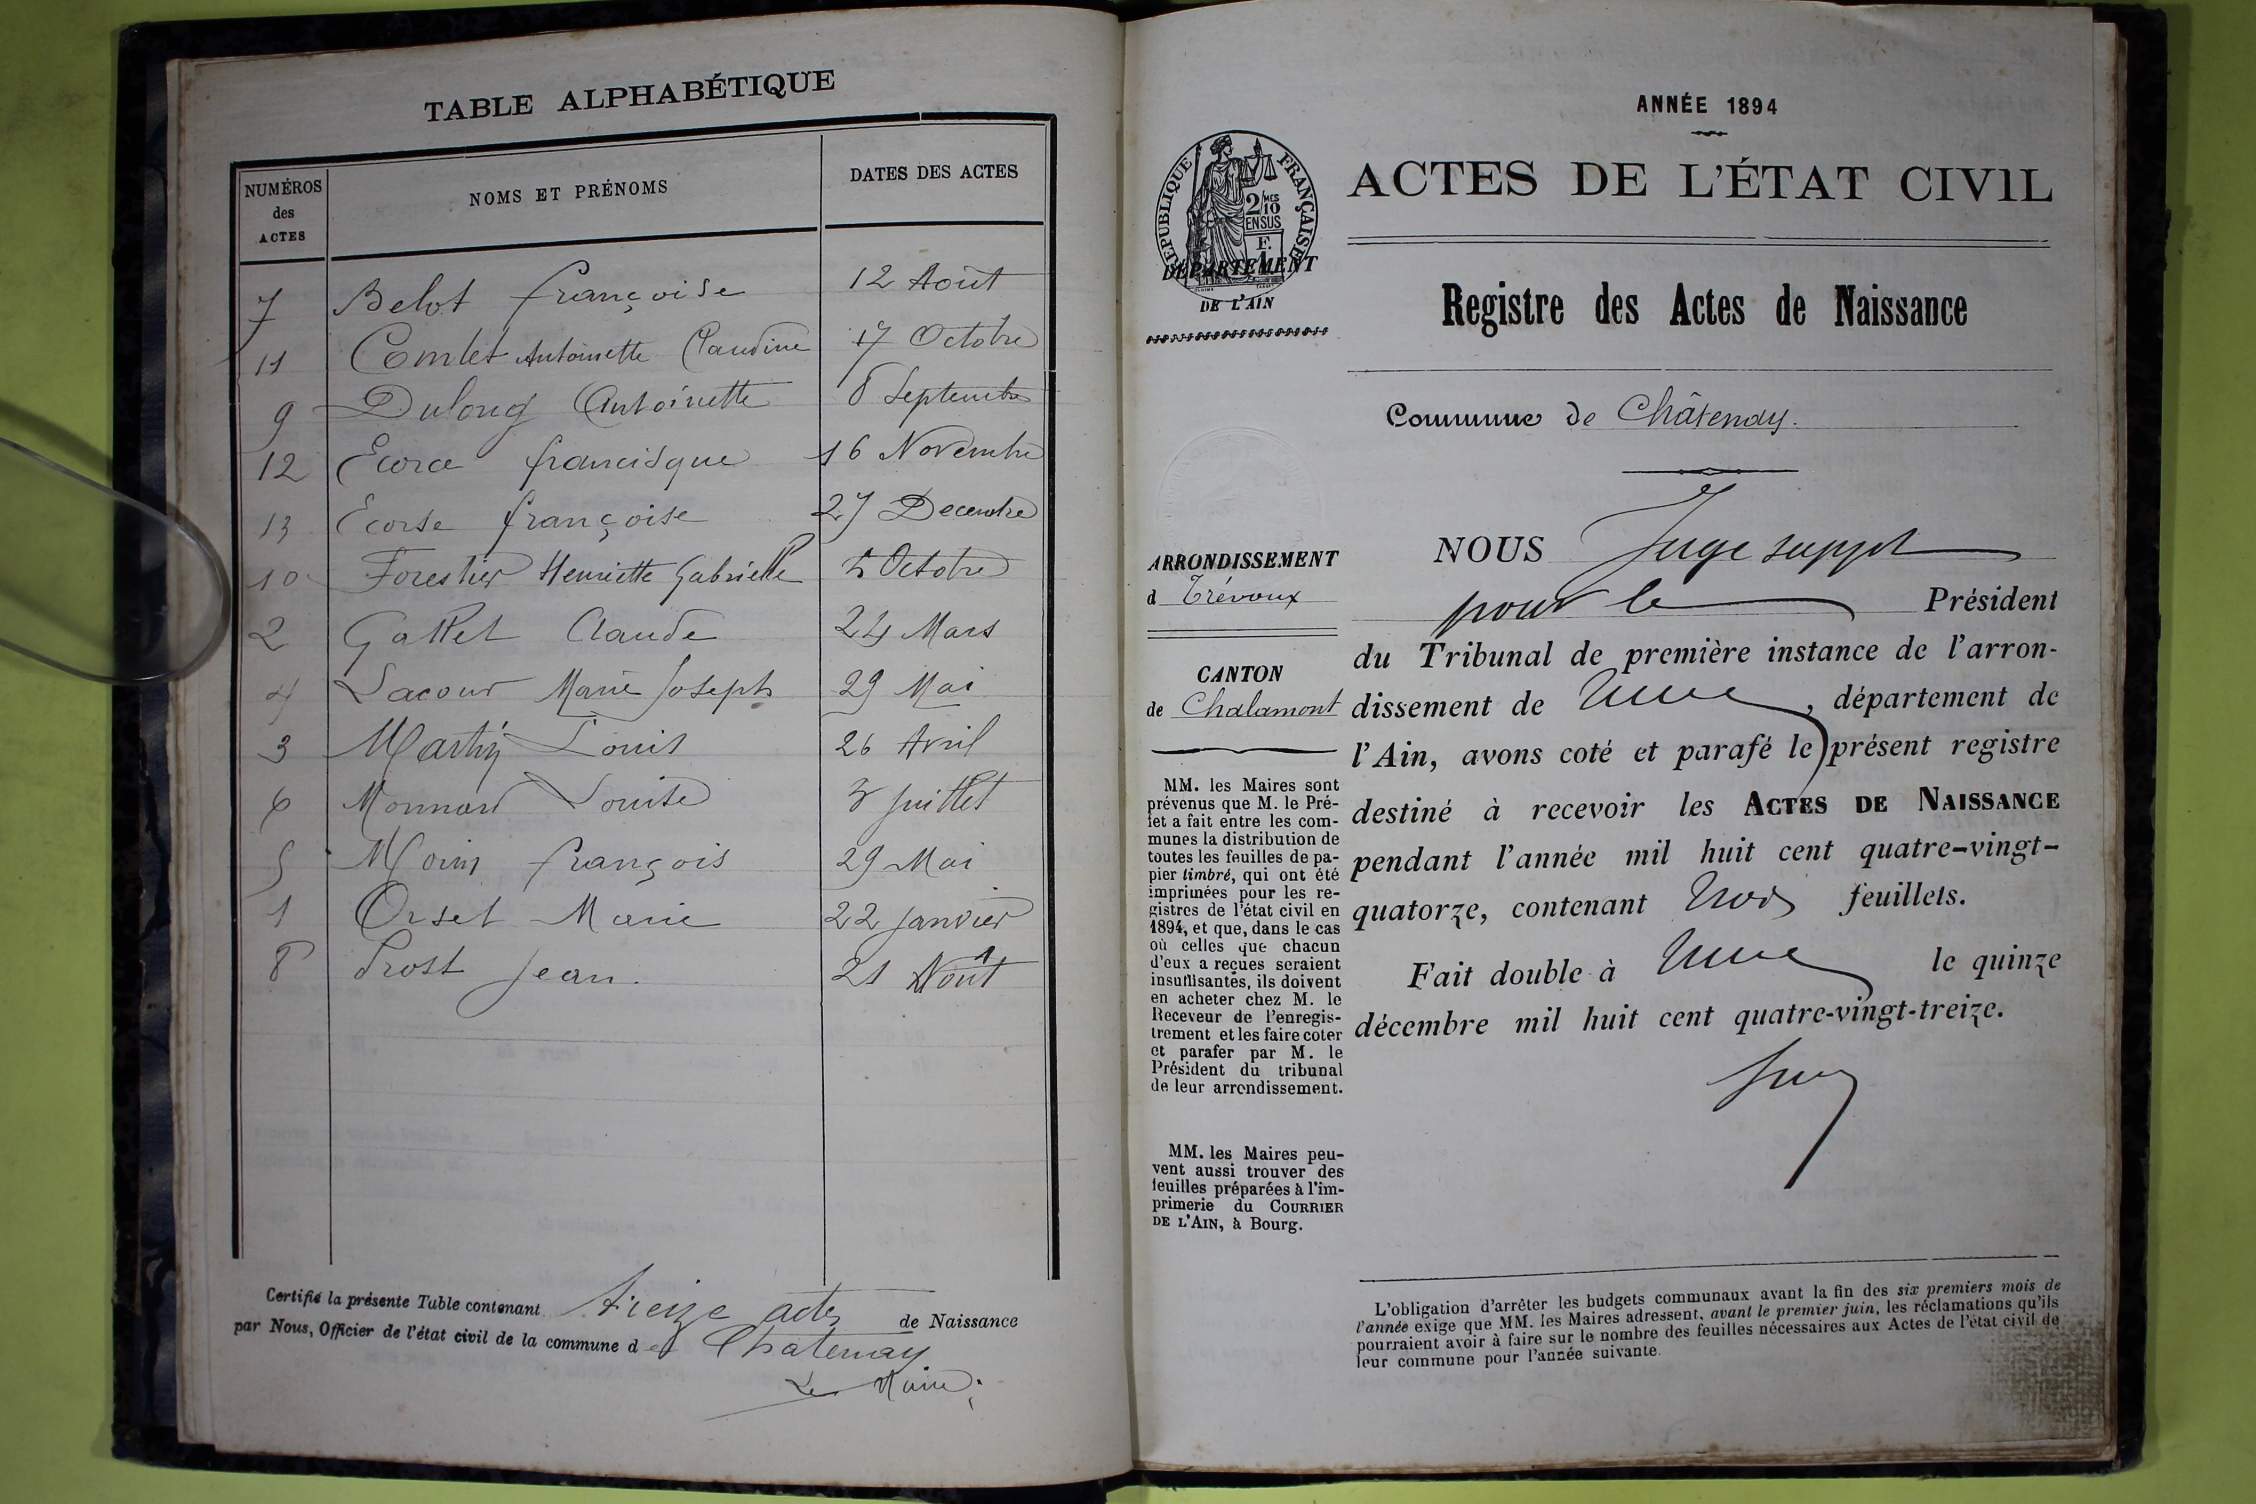 TABLE ALPHABÉTIQUE
NUMÉROS des ACTES
NOMS ET PRÉNOMS
DATES DES ACTES
7 Belot françoise 12 Août
11 Comlet Antoinette Claudine 17 Octobre
9 Dulong Antoinette 8 Septembre
12 Ecorce francisque 16 Novembre
13 Ecorse françoise 27 Decembre
10 Forestier Henriette Gabrielle 5 Octobre
2 Gallet Claude 24 Mars
4 Lacour Marie Joseph 29 Mai
3 Martin Louis 26 Avril
6 Monnard Louise 3 Juillet
5 Morin françois 29 Mai
1 Orset Marie 22 Janvier
8 Prost Jean. 21 Août
Certifié la présente Table contenant treize actes de Naissance
par Nous, Officier de l'état civil de la commune de Chatenay
Le Maire;
ANNÉE 1894
RÉPUBLIQUE FRANÇAISE
2/10 MES
EN SUS
F.
DÉPARTEMENT
DE L'AIN
ACTES DE L'ÉTAT CIVIL
Registre des Actes de Naissance
Commune de Châtenay.
ARRONDISSEMENT
d Trévoux
CANTON
de Chalamont
MM. les Maires sont
prévenus que M. le Pré-
fet a fait entre les com-
munes la distribution de
toutes les feuilles de pa-
pier timbré, qui ont été
imprimées pour les re-
gistres de l'état civil en
1894, et que, dans le cas
où celles que chacun
d'eux a reçues seraient
insuffisantes, ils doivent
en acheter chez M. le
Receveur de l'enregis-
trement et les faire coter
et parafer par M. le
Président du tribunal
de leur arrondissement.
MM. les Maires peu-
vent aussi trouver des
feuilles préparées à l'im-
primerie du COURRIER
DE L'AIN, à Bourg.
NOUS Juge suppt
pour le Président
du Tribunal de première instance de l'arron-
dissement de , département de
l'Ain, avons coté et parafé le présent registre
destiné à recevoir les ACTES DE NAISSANCE
pendant l'année mil huit cent quatre-vingt-
quatorze, contenant trois feuillets.
Fait double à le quinze
décembre mil huit cent quatre-vingt-treize.
L'obligation d'arrêter les budgets communaux avant la fin des six premiers mois de
l'année exige que MM. les Maires adressent, avant le premier juin, les réclamations qu'ils
pourraient avoir à faire sur le nombre des feuilles nécessaires aux Actes de l'état civil de
leur commune pour l'année suivante.